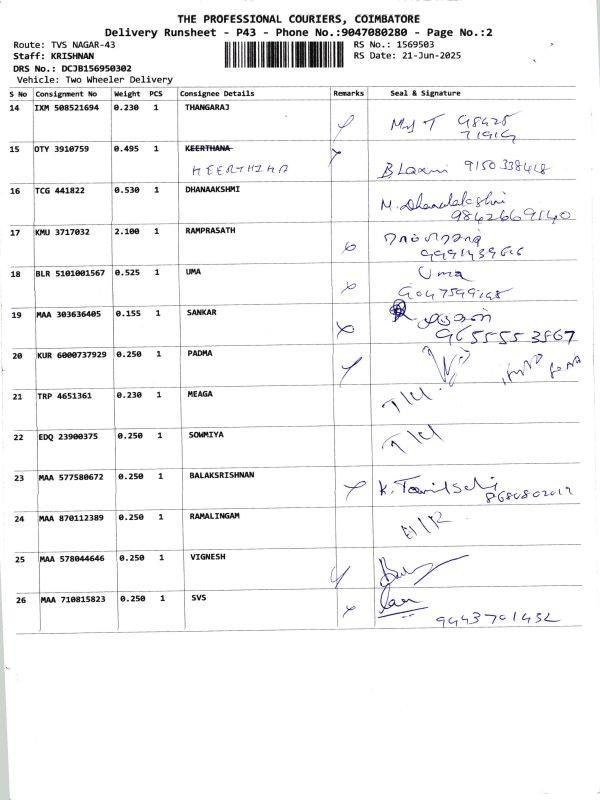 THE PROFESSIONAL COURIERS, COIMBATORE
Delivery Runsheet - P43 - Phone No.:9047080280 - Page No.:2
Route: TVS NAGAR-43
RS No.: 1569503
Staff: KRISHNAN
RS Date: 21-Jun-2025
DRS No.: DCJB156950302
Vehicle: Two Wheeler Delivery
S No Consignment No Weight PCS Consignee Details Remarks Seal & Signature
14 IXM 508521694 0.230 1 THANGARAJ
98425
15 OTY 3910759 0.495 1 KEERTHANA
KEERTHIKA B Laxmi 9150338418
16 TCG 441822 0.530 1 DHANAAKSHMI
M. Dhanalakshmi
9842669140
17 KMU 3717032 2.100 1 RAMPRASATH
18 BLR 5101001567 0.525 1 UMA Uma
19 MAA 303636405 0.155 1 SANKAR
9655553867
20 KUR 6000737929 0.250 1 PADMA
21 TRP 4651361 0.230 1 MEAGA
22 EDQ 23900375 0.250 1 SOWMIYA
23 MAA 577580672 0.250 1 BALAKSRISHNAN
K. Tamilselvi
24 MAA 870112389 0.250 1 RAMALINGAM
25 MAA 578044646 0.250 1 VIGNESH
26 MAA 710815823 0.250 1 SVS
9443701432